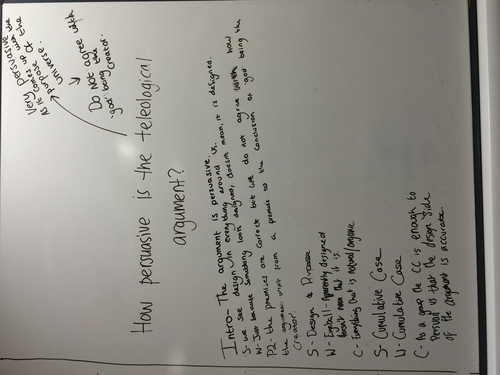 Very persuasive the
as it comes up with the
purpose of
universe.
Do not agree with
the
'god' being
creator.
How persuasive is the teleological
argument?
Intro- The argument is persuasive.
S- we see design in everything around us.
W- Just because something looks designed, doesnt mean, it is designed.
P2- the premises are correct but we do not agree how
the argument went from a premise to the conclusion of 'god' being the
creator.
S- Design & Process
W- Eyeball- Apparently designed
doesn't mean that it is.
C- Everything that is natural/organic
S- Cumulative Case
W- Cumulative Case
C- As a group the CC is enough to
persuad us that the design side
of the argument is accurate.